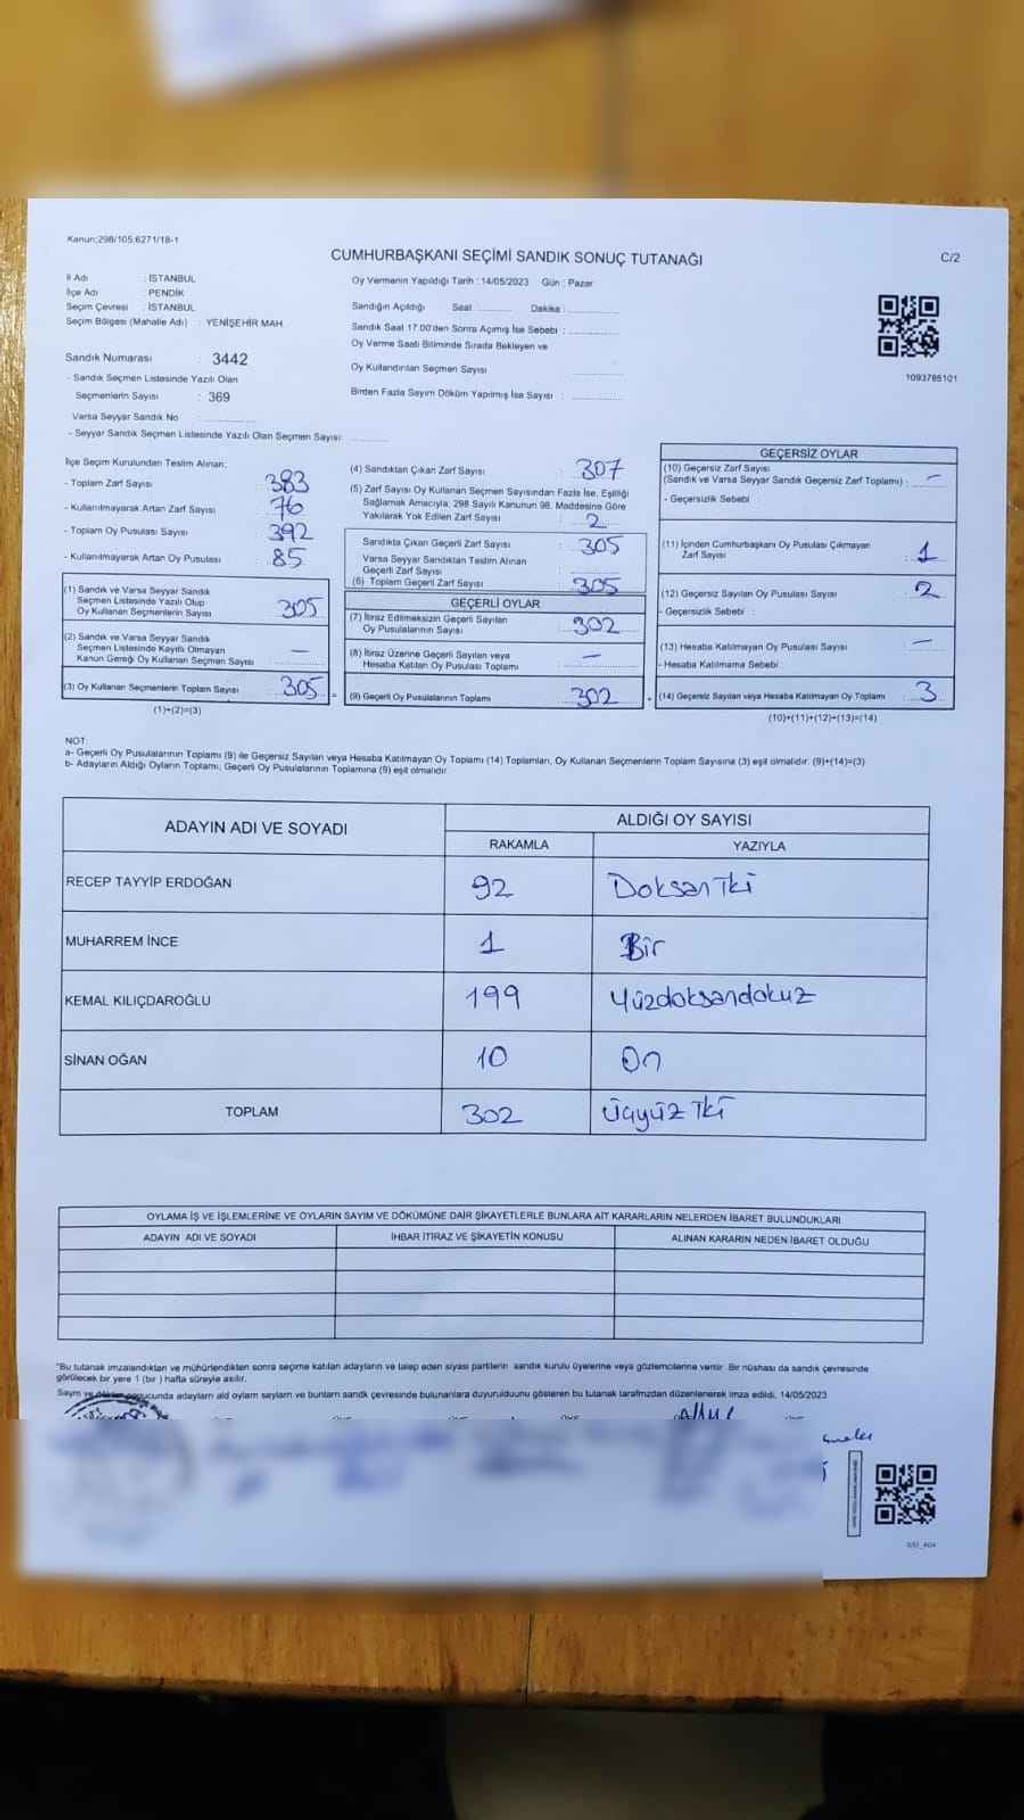 Kanun;298/105;6271/18-1
CUMHURBAŞKANI SEÇİMİ SANDIK SONUÇ TUTANAĞI
C/2
İl Adı : İSTANBUL
İlçe Adı : PENDİK
Seçim Çevresi : İSTANBUL
Seçim Bölgesi (Mahalle Adı) : YENİŞEHİR MAH
Oy Vermenin Yapıldığı Tarih : 14/05/2023 Gün : Pazar
Sandığın Açıldığı Saat : Dakika :
Sandık Saat 17.00'den Sonra Açımış İse Sebebi :
Oy Verme Saati Bitiminde Sırada Bekleyen ve
Oy Kullandırılan Seçmen Sayısı
Birden Fazla Sayım Döküm Yapılmış İse Sayısı :
1093785101
Sandık Numarası : 3442
- Sandık Seçmen Listesinde Yazılı Olan
Seçmenlerin Sayısı : 369
Varsa Seyyar Sandık No :
- Seyyar Sandık Seçmen Listesinde Yazılı Olan Seçmen Sayısı:
İlçe Seçim Kurulundan Teslim Alınan;
- Toplam Zarf Sayısı : 383
- Kullanılmayarak Artan Zarf Sayısı : 76
- Toplam Oy Pusulası Sayısı : 392
- Kullanılmayarak Artan Oy Pusulası : 85
(1) Sandık ve Varsa Seyyar Sandık
Seçmen Listesinde Yazılı Olup
Oy Kullanan Seçmenlerin Sayısı : 305
(2) Sandık ve Varsa Seyyar Sandık
Seçmen Listesinde Kayıtlı Olmayan
Kanun Gereği Oy Kullanan Seçmen Sayısı —
(3) Oy Kullanan Seçmenlerin Toplam Sayısı : 305
(1)+(2)=(3)
(4) Sandıktan Çıkan Zarf Sayısı : 307
(5) Zarf Sayısı Oy Kullanan Seçmen Sayısından Fazla İse, Eşitliği
Sağlamak Amacıyla, 298 Sayılı Kanunun 98. Maddesine Göre
Yakılarak Yok Edilen Zarf Sayısı : 2
Sandıkta Çıkan Geçerli Zarf Sayısı : 305
Varsa Seyyar Sandıktan Teslim Alınan
Geçerli Zarf Sayısı :
(6) Toplam Geçerli Zarf Sayısı : 305
GEÇERLİ OYLAR
(7) İtiraz Edilmeksizin Geçerli Sayılan
Oy Pusulalarının Sayısı : 302
(8) İtiraz Üzerine Geçerli Sayılan veya
Hesaba Katılan Oy Pusulası Toplamı : —
(9) Geçerli Oy Pusulalarının Toplamı : 302
GEÇERSİZ OYLAR
(10) Geçersiz Zarf Sayısı
(Sandık ve Varsa Seyyar Sandık Geçersiz Zarf Toplamı) : —
- Geçersizlik Sebebi :
(11) İçinden Cumhurbaşkanı Oy Pusulası Çıkmayan
Zarf Sayısı : 1
(12) Geçersiz Sayılan Oy Pusulası Sayısı : 2
- Geçersizlik Sebebi :
(13) Hesaba Katılmayan Oy Pusulası Sayısı : —
- Hesaba Katılmama Sebebi :
(14) Geçersiz Sayılan veya Hesaba Katılmayan Oy Toplamı : 3
(10)+(11)+(12)+(13)=(14)
NOT:
a- Geçerli Oy Pusulalarının Toplamı (9) ile Geçersiz Sayılan veya Hesaba Katılmayan Oy Toplamı (14) Toplamları, Oy Kullanan Seçmenlerin Toplam Sayısına (3) eşit olmalıdır. (9)+(14)=(3)
b- Adayların Aldığı Oyların Toplamı; Geçerli Oy Pusulalarının Toplamına (9) eşit olmalıdır
ADAYIN ADI VE SOYADI
ALDIĞI OY SAYISI
RAKAMLA YAZIYLA
RECEP TAYYİP ERDOĞAN 92 Doksan İki
MUHARREM İNCE 1 Bir
KEMAL KILIÇDAROĞLU 199 Yüzdoksandokuz
SİNAN OĞAN 10 On
TOPLAM 302 Üçyüz İki
OYLAMA İŞ VE İŞLEMLERİNE VE OYLARIN SAYIM VE DÖKÜMÜNE DAİR ŞİKAYETLERLE BUNLARA AİT KARARLARIN NELERDEN İBARET BULUNDUKLARI
ADAYIN ADI VE SOYADI İHBAR İTİRAZ VE ŞİKAYETİN KONUSU ALINAN KARARIN NEDEN İBARET OLDUĞU
"Bu tutanak imzalandıktan ve mühürlendikten sonra seçime katılan adayların ve talep eden siyasi partilerin sandık kurulu üyelerine veya gözlemcilerine verilir. Bir nüshası da sandık çevresinde
görülecek bir yere 1 (bir ) hafta süreyle asılır.
Sayım ve döküm sonucunda adayların ald oyların sayıların ve bunların sandık çevresinde bulunanlara duyurulduunu gösteren bu tutanak tarafımzdan düzenlenerek imza edildi. 14/05/2023